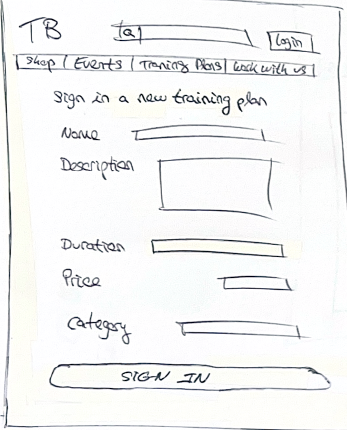 TB [a] Login
Shop | Events | Traning Plans | Work with us
Sign in a new training plan
Name
Description
Duration
Price
Category
SIGN IN